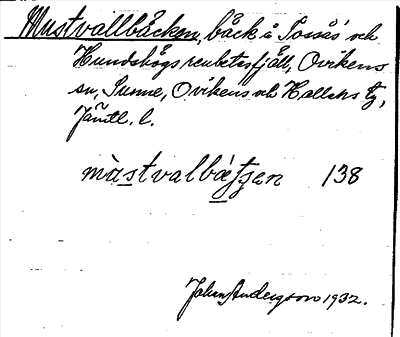 Mustvallbäcken, bäck å Tossås' och
Hundshögs renbetesfjäll, Ovikens
sn, Sunne, Ovikens och Hallens tg,
Jämtl. l.
mùstvalbáȩ́tʃen 138
John Anderson 1932.